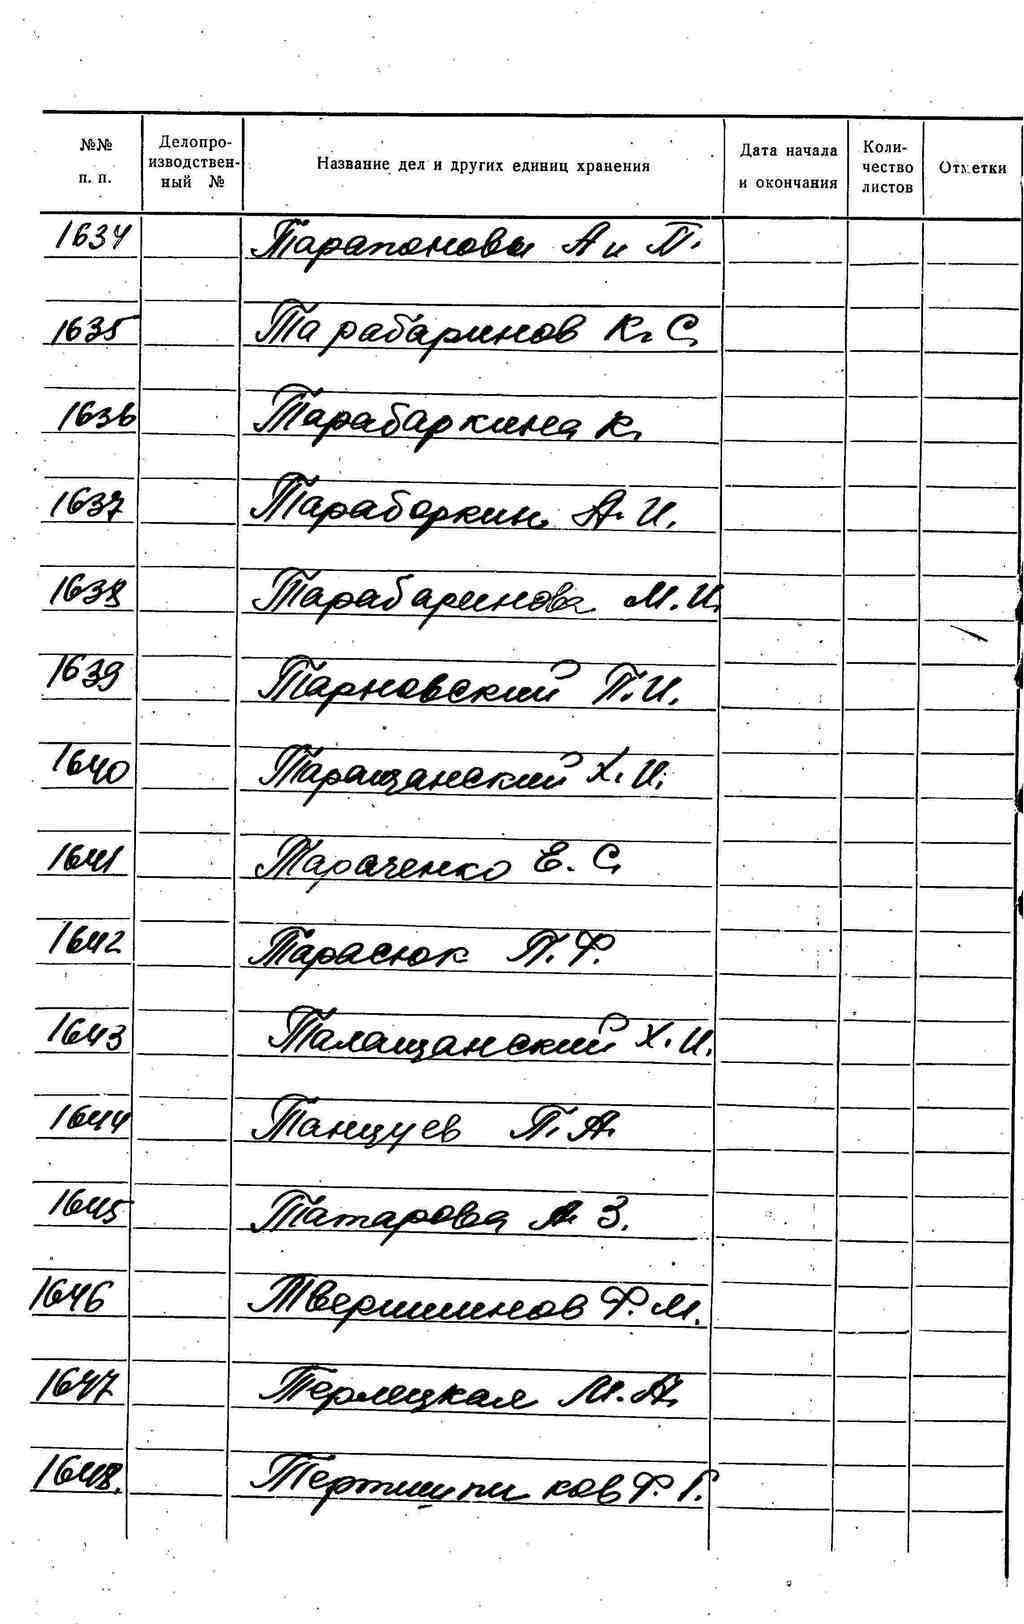 №№ п. п. Делопроизводственный № Название дел и других единиц хранения Дата начала и окончания Количество листов Отметки
1634 Тарапоновы А и П.
1635 Тарабаринов К. С.
1636 Тарабаркина К.
1637 Тарабаркин А. И.
1638 Тарабаринова М. И.
1639 Тарновский П. И.
1640 Таращанский Х. И.
1641 Тараченко Е. С.
1642 Тарасюк П. Ф.
1643 Талащанский Х. И.
1644 Танцуев П. А.
1645 Татарова А. З.
1646 Твершинов Ф. М.
1647 Терлецкая М. А.
1648. Ф. Г.